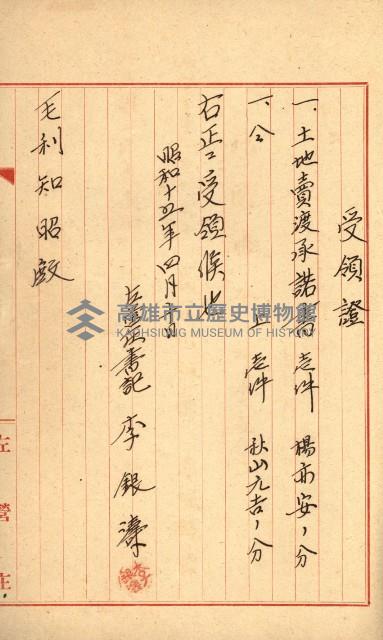 受領證
一、土地賣渡承諾書 壱件 楊亦安ノ分
一、仝 上 壱件 秋山元吉ノ分
右正ニ受領候也
昭和十五年四月 日
左營庄書記 李銀濤
毛利知昭殿
左營庄
高雄市立歷史博物館
KAOHSIUNG MUSEUM OF HISTORY